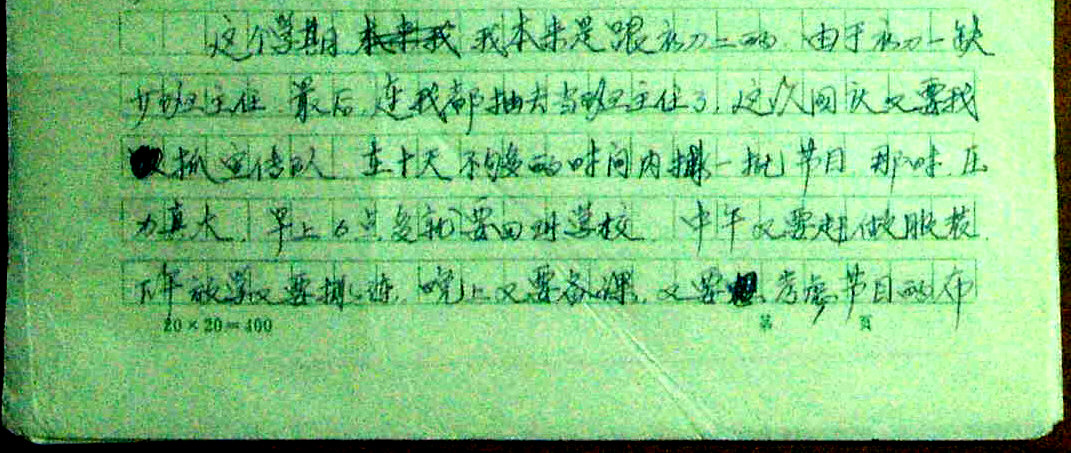 这个学期 我本来是跟初二的 由于初一缺
少班主任 最后,连我都抽去当班主任了,这次国庆又要我
抓宣传队 在十天不够的时间内排一批节目 那时,压
力真大,早上6点多就要回到学校 中午又要赶做服装,
下午放学又要排练,晚上又要备课,又要考虑节目的布
20×20=400 第 页